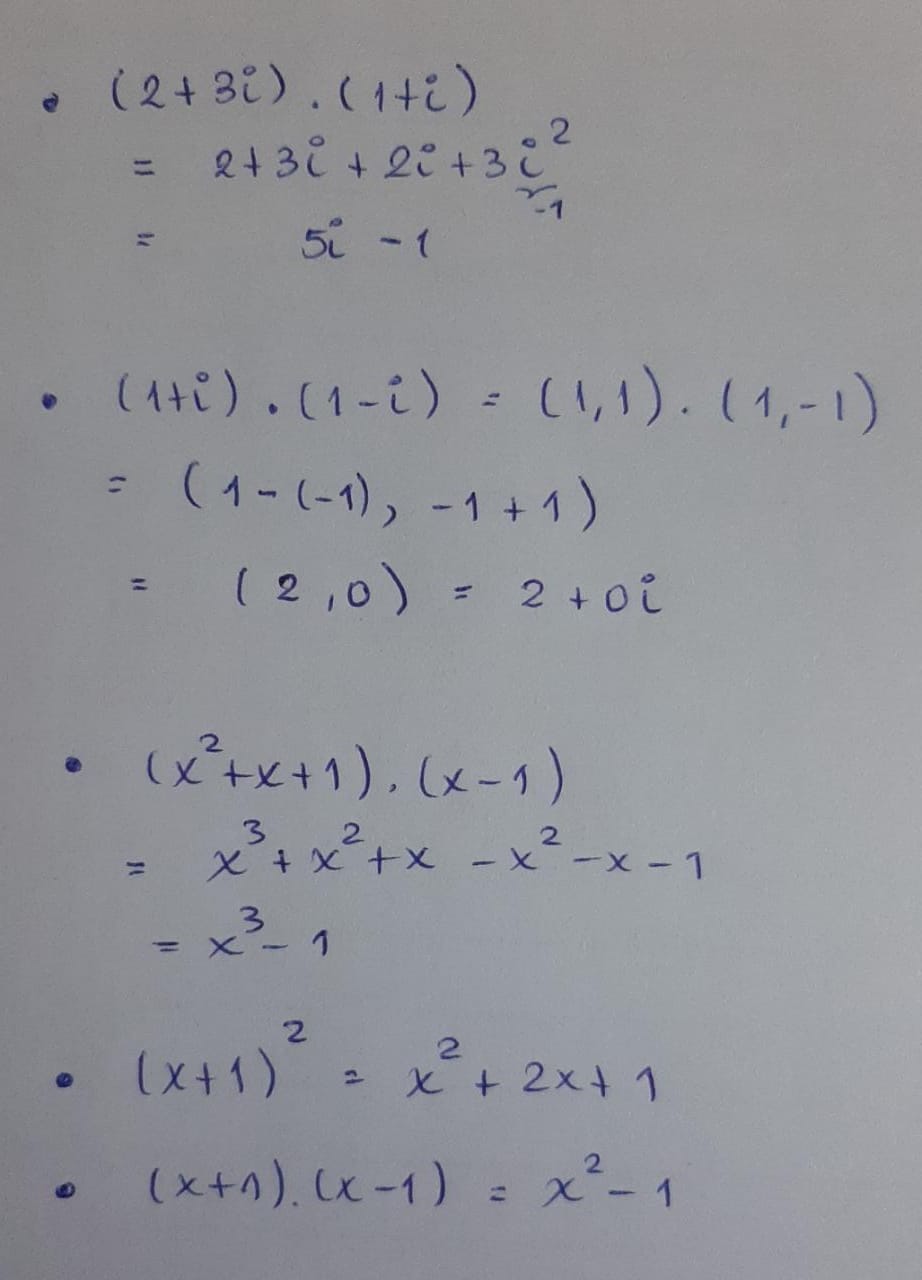 • (2+3i).(1+i)
= 2+3i+2i+3i²
-1
= 5i -1
• (1+i).(1-i) = (1,1).(1,-1)
= (1-(-1), -1+1)
= (2,0) = 2+0i
• (x²+x+1).(x-1)
= x³+x²+x -x²-x-1
= x³-1
• (x+1)² = x²+2x+1
• (x+1).(x-1) = x²-1